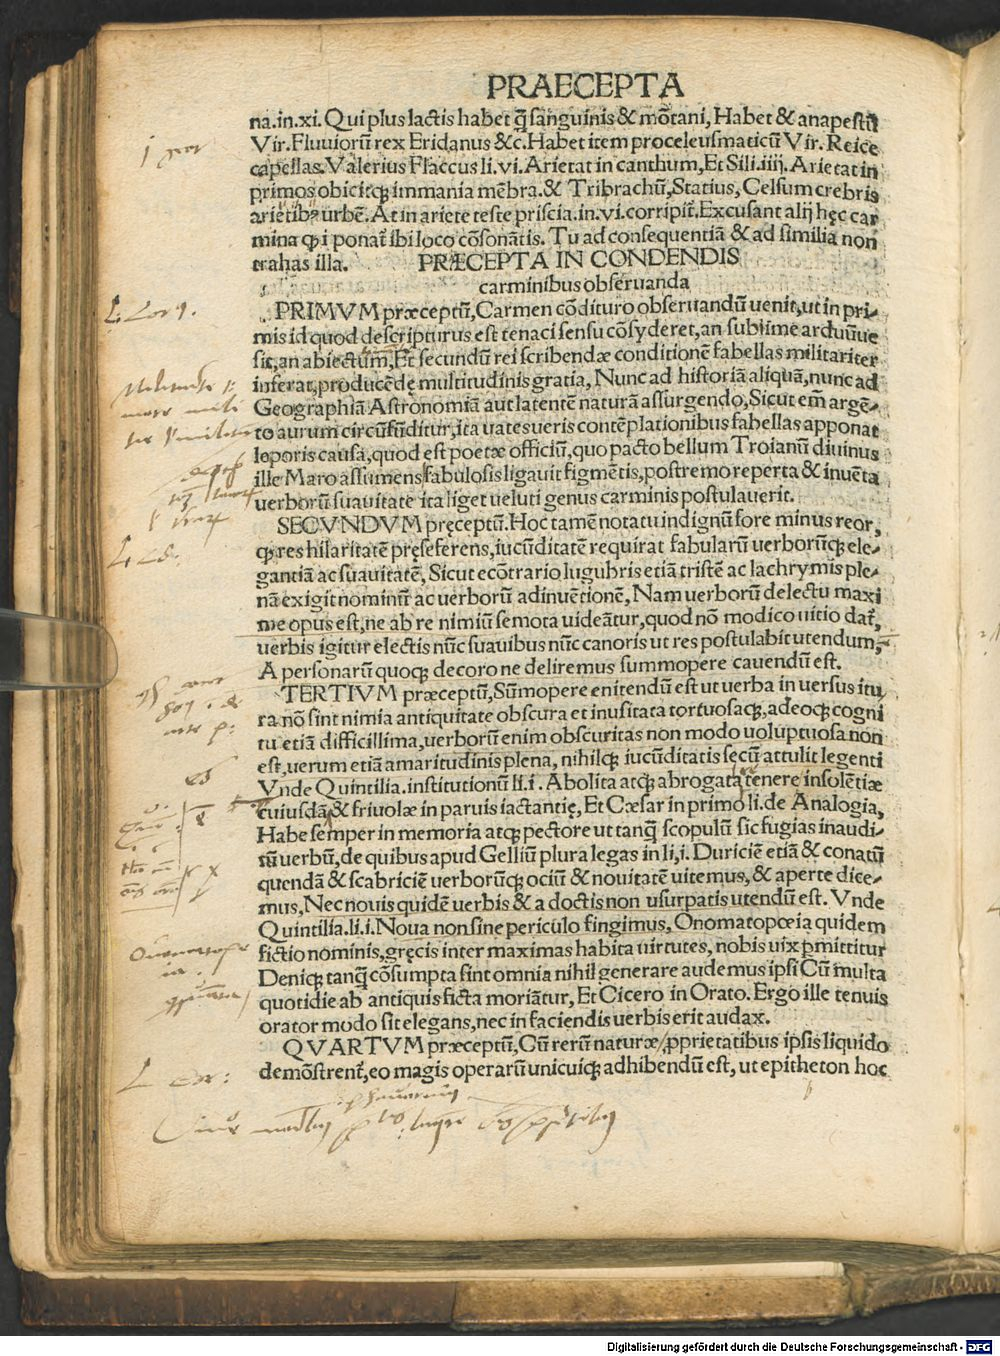 PRAECEPTA
na.in.xi. Qui plus lactis habet q̃ sanguinis & mõtani, Habet & anapestũ
Vir. Fluuiorũ rex Eridanus &c. Habet item proceleusmaticũ Vir. Reice
capellas. Valerius Flaccus li. vi. Arietat in canthum, Et Sili. iiij. Arietat in
primos obicitqꝫ immania mẽbra. & Tribrachũ, Statius, Celsum crebris
arietibꝰ urbẽ. At in ariete teste priscia. in. vi. corripit̃. Excusant alij hęc car
mina qꝫ i ponat̃ ibi loco cõsonãtis. Tu ad consequentiã & ad similia non
trahas illa. PRÆCEPTA IN CONDENDIS
carminibus obseruanda
PRIMVM præceptũ, Carmen cõdituro obseruandũ uenit, ut in pri-
mis id quod descripturus est tenaci sensu cõsyderet, an sublime arduũue
sit, an abiectum, Et secundũ rei scribendæ conditionẽ fabellas militariter
inferat, producẽdę multitudinis gratia, Nunc ad historiã aliquã, nunc ad
Geographiã Astronomiã aut latentẽ naturã assurgendo, Sicut em̃ argẽ-
to aurum circũfũditur, ita uates ueris contẽplationibus fabellas apponat
leporis causa, quod est poetæ officiũ, quo pacto bellum Troianũ diuinus
ille Maro assumens fabulosis ligauit figmẽtis, postremo reperta & inuẽta
uerborũ suauitate ita liget ueluti genus carminis postulauerit.
SECVNDVM pręceptũ. Hoc tamẽ notatu indignũ fore minus reor,
qꝫ res hilaritatẽ pręseferens, iucũditatẽ requirat fabularũ uerborũqꝫ ele-
gantiã ac suauitatẽ, Sicut ecõtrario lugubris etiã tristẽ ac lachrymis ple-
nã exigit nominũ ac uerborũ adinuẽtionẽ, Nam uerborũ delectu maxi
me opus est, ne ab re nimiũ semota uideãtur, quod nõ modico uitio dat̃,
uerbis igitur electis nũc suauibus nũc canoris ut res postulabit utendum,
A personarũ quoqꝫ decoro ne deliremus summopere cauendũ est.
TERTIVM præceptũ, Sũmopere enitendũ est ut uerba in uersus itu
ra nõ sint nimia antiquitate obscura et inusitata tortuosaqꝫ, adeoqꝫ cogni
tu etiã difficillima, uerborũ enim obscuritas non modo uoluptuosa non
est, uerum etiã amaritudinis plena, nihilqꝫ iucũditatis secũ attulit legenti
Vnde Quintilia. institutionũ li. i. Abolita atqꝫ abrogata tenere insolẽtiæ
cuiusdã & friuolæ in paruis iactantię, Et Cæsar in primo li. de Analogia,
Habe semper in memoria atqꝫ pectore ut tanq̃ scopulũ sic fugias inaudi-
tũ uerbũ, de quibus apud Gelliũ plura legas in li, i. Duriciẽ etiã & conatũ
quendã & scabriciẽ uerborũqꝫ ociũ & nouitatẽ uitemus, & aperte dice-
mus, Nec nouis quidẽ uerbis & a doctis non usurpatis utendũ est. Vnde
Quintilia. li. i. Noua non sine periculo fingimus, Onomatopœia quidem
fictio nominis, gręcis inter maximas habita uirtutes, nobis uix ꝑmittitur
Deniqꝫ tanq̃ cõsumpta sint omnia nihil generare audemus ipsi Cũ multa
quotidie ab antiquis ficta moriãtur, Et Cicero in Orato. Ergo ille tenuis
orator modo sit elegans, nec in faciendis uerbis erit audax.
QVARTVM præceptũ, Cũ rerũ naturæ / ꝓprietatibus ipsis liquido
demõstrent̃, eo magis operarũ unicuiqꝫ adhibendũ est, ut epitheton hoc
Digitalisierung gefördert durch die Deutsche Forschungsgemeinschaft - DFG